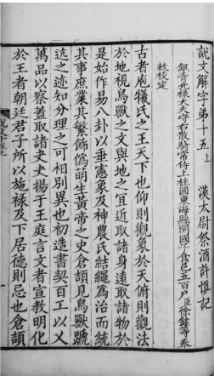 說文解字弟十五上
漢太尉祭酒許慎記
銀青光祿大夫守右散騎常侍上柱國東海縣開國子食邑五百戶臣徐鉉等奉
敕校定
古者庖犧氏之王天下也仰則觀象於天俯則觀法
於地視鳥獸之文與地之宜近取諸身遠取諸物於
是始作易八卦以垂憲象及神農氏結繩為治而統
其事庶業其繁飾偽萌生黃帝之史倉頡見鳥獸蹏
迒之迹知分理之可相別異也初造書契百工以乂
萬品以察蓋取諸夬夬揚于王庭言文者宣教明化
於王者朝廷君子所以施祿及下居德則忌也倉頡